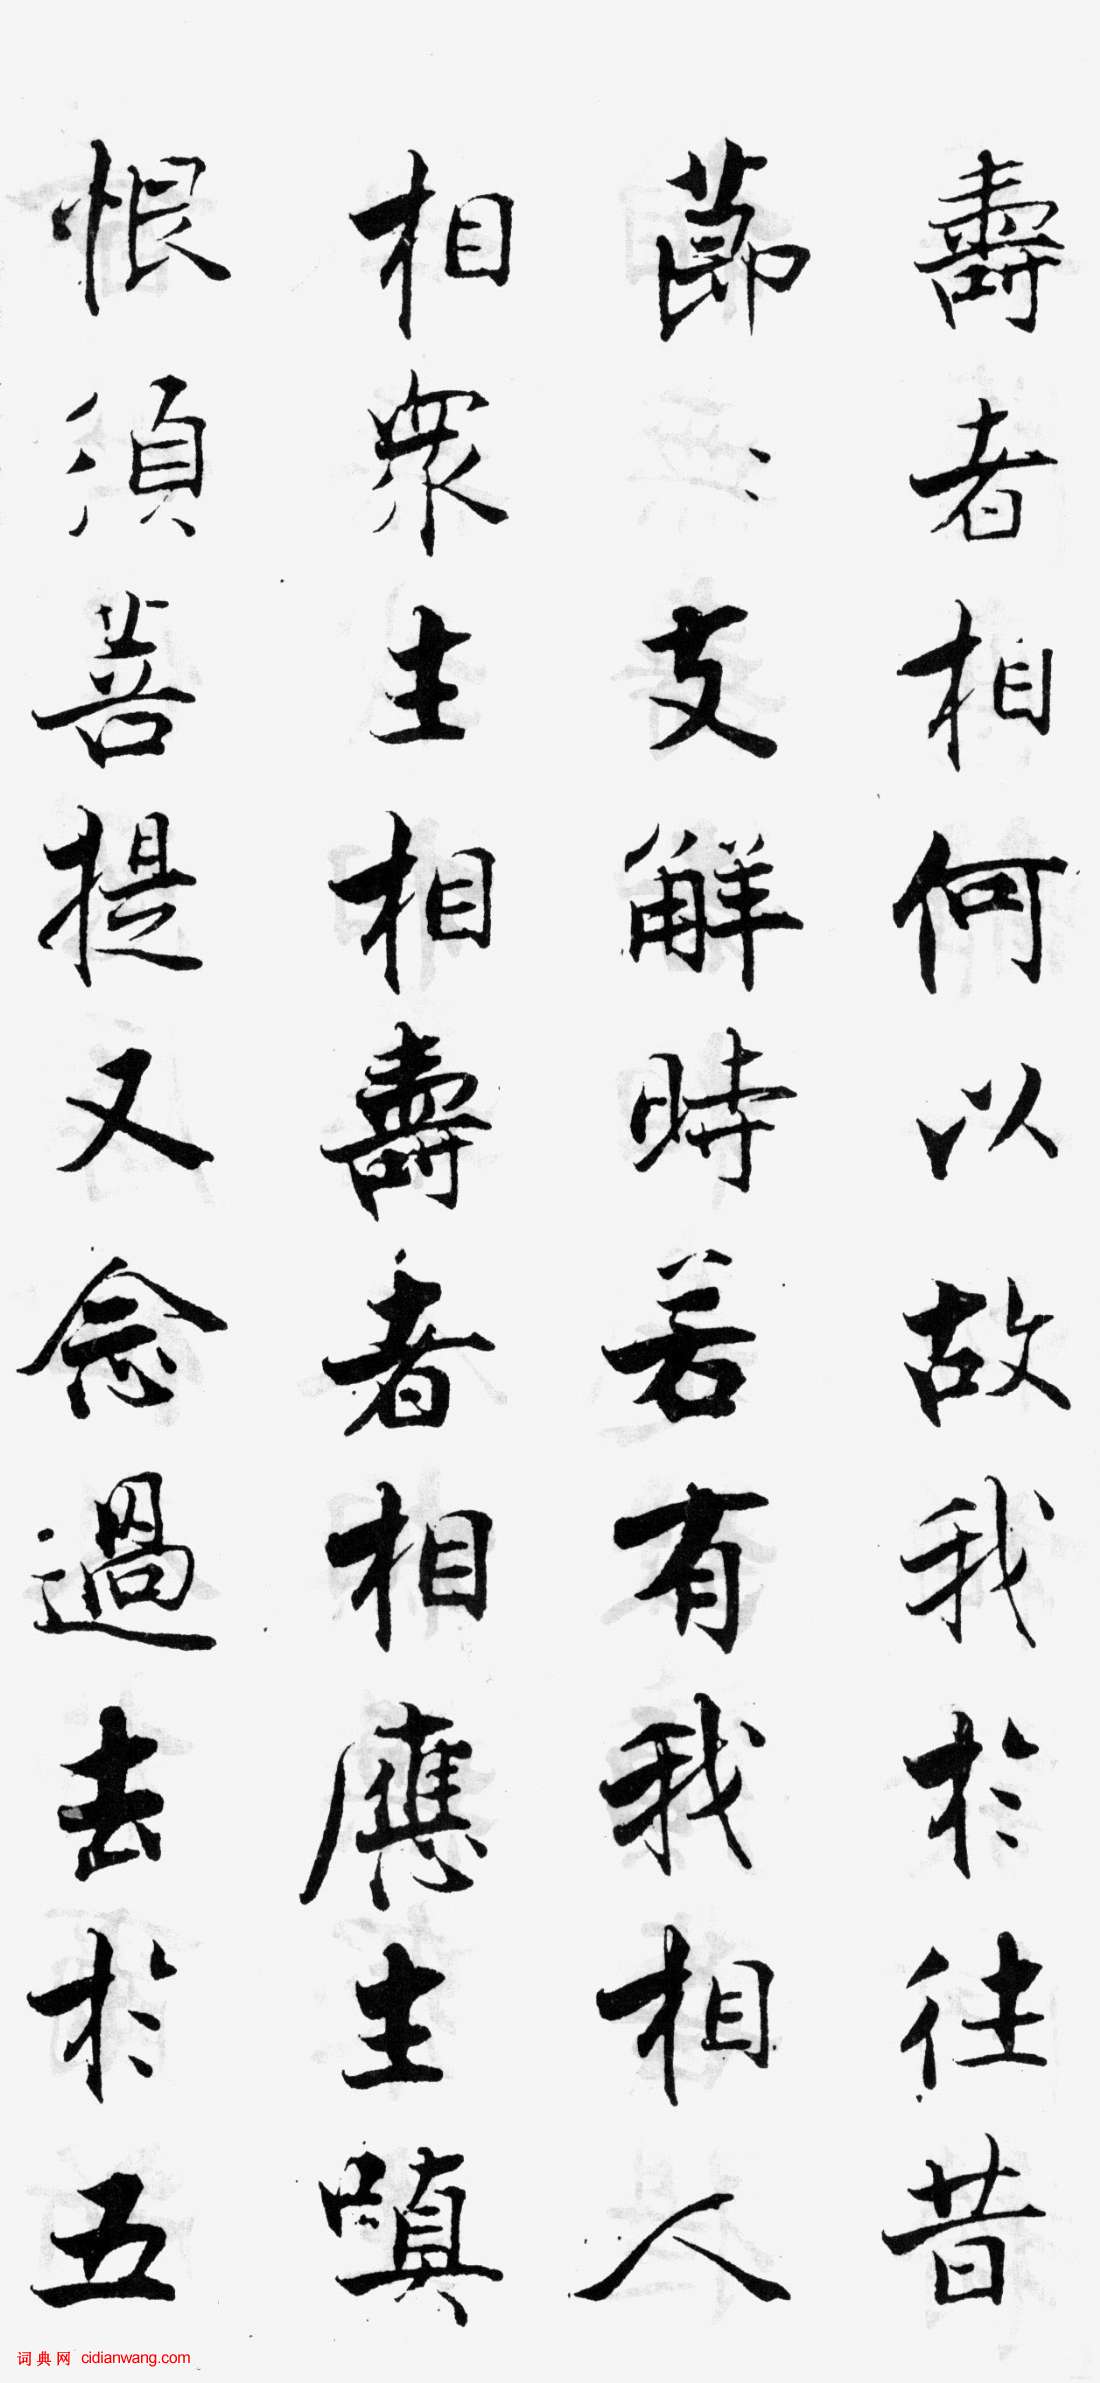 壽者相何以故我於往昔
節〻支解時若有我相人
相衆生相壽者相應生嗔
恨須菩提又念過去於五
词典网 cidianwang.com